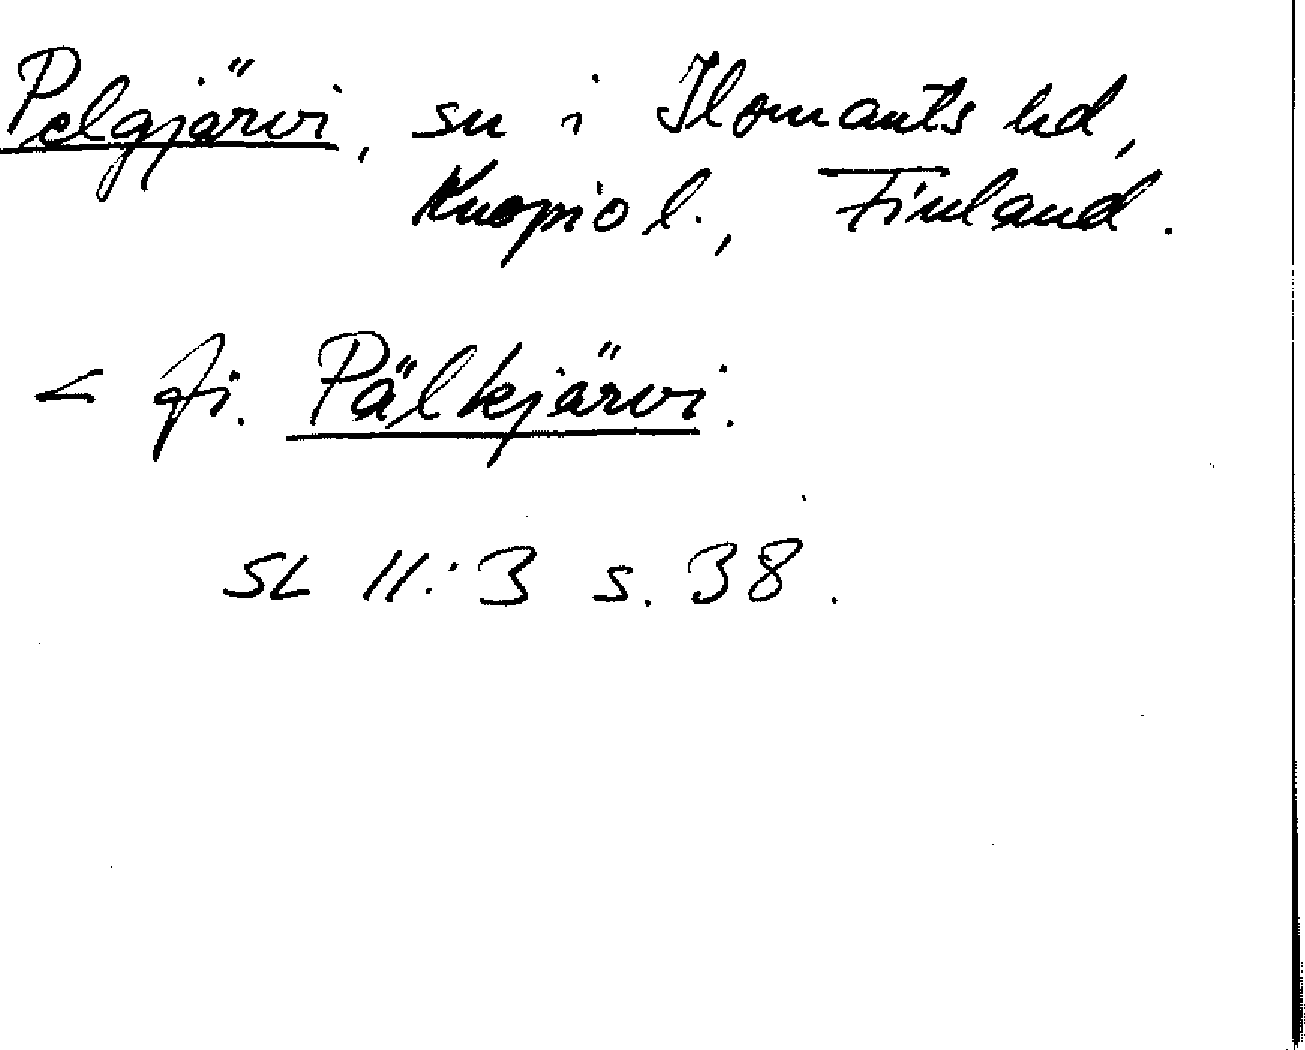 Pelgjärvi, sn i Ilomants hd,
Kuopio l., Finland.
< fi. Pälkjärvi.
SL 11:3 s. 38.